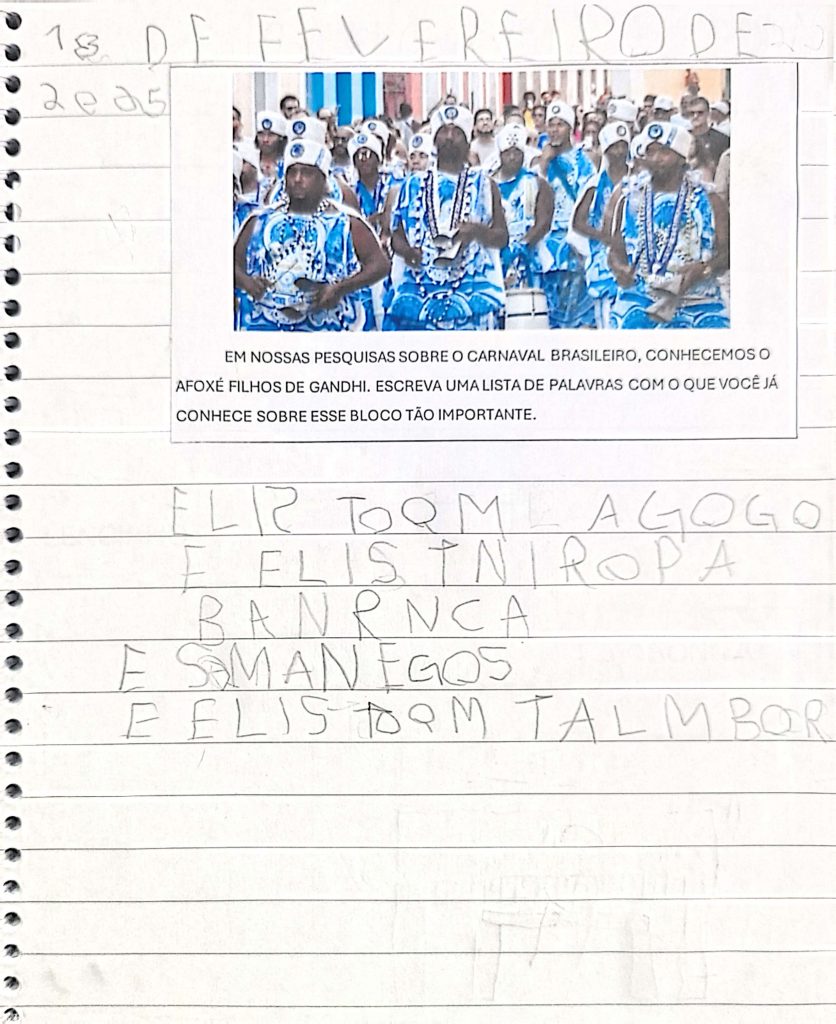 18 DE FEVEREIRO DE
2025
EM NOSSAS PESQUISAS SOBRE O CARNAVAL BRASILEIRO, CONHECEMOS O
AFOXÉ FILHOS DE GANDHI. ESCREVA UMA LISTA DE PALAVRAS COM O QUE VOCÊ JÁ
CONHECE SOBRE ESSE BLOCO TÃO IMPORTANTE.
ELIS TOQM AGOGO
E ELIS TNI ROPA
BANRNCA
E SAMANEGOS
E ELIS TOQM TALMBOR